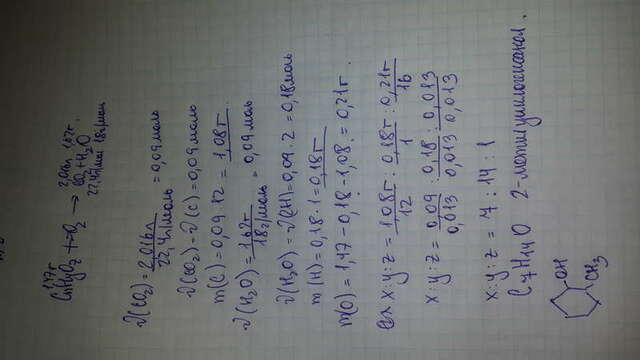 1,47г. 2,016л 1,62г.
CxHyOz + O2 → CO2 + H2O
22,4л/моль 18г/моль
ν(CO2) = 2,016л / 22,4л/моль = 0,09моль
ν(CO2) = ν(C) = 0,09моль
m(C) = 0,09 · 12 = 1,08г.
ν(H2O) = 1,62г / 18г/моль = 0,09 моль
ν(H2O) = ν(2H) = 0,09 · 2 = 0,18моль
m(H) = 0,18 · 1 = 0,18г
m(O) = 1,47 - 0,18 - 1,08 = 0,21г.
x : y : z = 1,08г / 12 : 0,18г / 1 : 0,21г / 16
x : y : z = 0,09 / 0,013 : 0,18 / 0,013 : 0,013 / 0,013
x : y : z = 7 : 14 : 1
C7H14O 2-метилциклогексанол.
OH
CH3